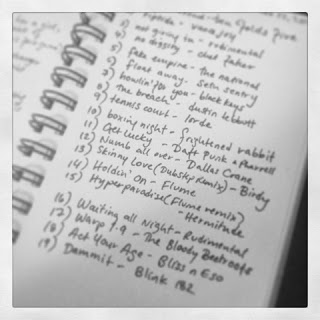 ben folds five
riptide - vance joy
not giving in - rudimental
no diggity - chet faker
fake empire - the national
float away - Seth Sentry
howlin' for you - black keys
the breach - dustin tebbutt
9) tennis court - lorde
10) boxing night - frightened rabbit
11) Get lucky - Daft Punk & Pharrell
12) Numb all over - Dallas Crane
13) Skinny Love (Dubstep Remix) - Birdy
14) Holdin' On - Flume
15) Hyperparadise (Flume remix)
- Hermitude
16) Waiting all Night - Rudimental
17) Warp 1.9 - The Bloody Beetroots
18) Act Your Age - Bliss n Eso
19) Dammit - Blink 182